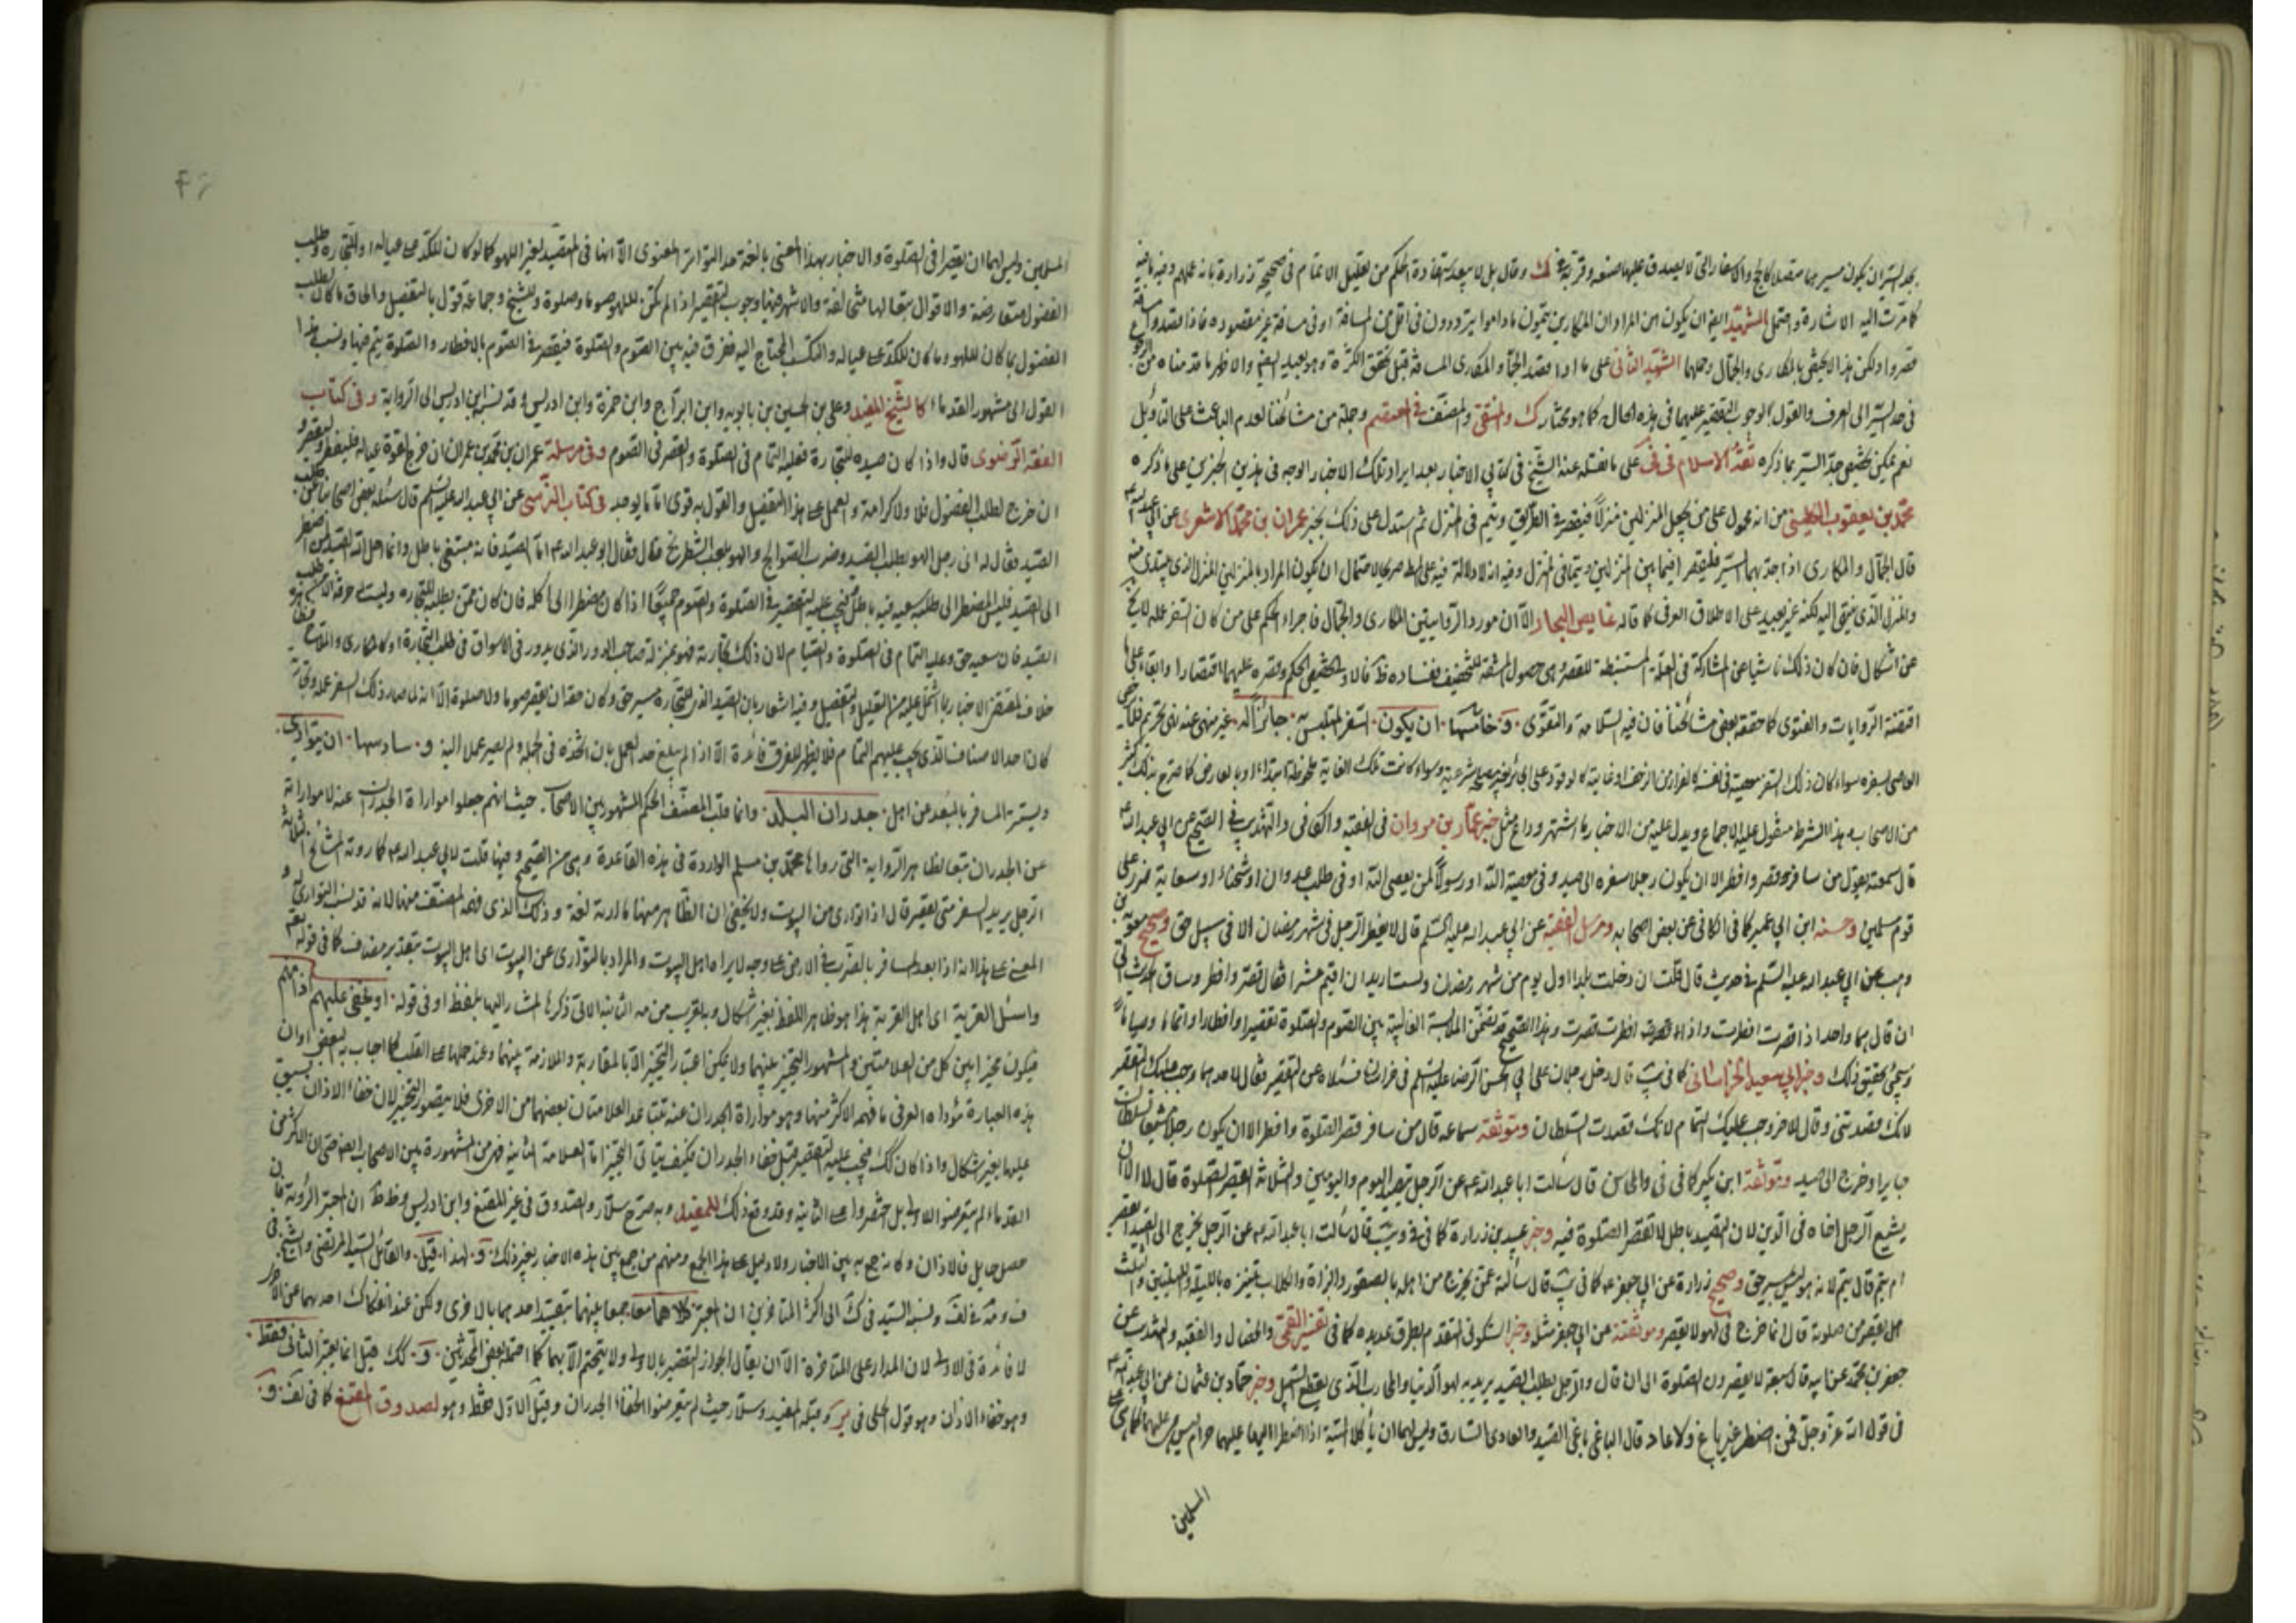 كما مرت اليه الاشارة واحتمل الشهيد ايضا ان يكون المراد ان المكارين يتمون ماداموا يترددون في اقل من المسافة او في مسافة غير مقصودة فاذا قصدوا مسافة
قصروا ولكن هذا لا يختص بالمكاري والجمال وحملها الشهيد الثاني على ما اذا قصد الجمال والمكاري المسافة قبل تحقق الكثرة وهو بعيد ايضا والاظهر ما قدمناه من الرجوع
في جد السير الى العرف والقول بوجوب التقصير عليهما في هذه الحال كما هو مختار ك والمنتقى والمصنف في المعتصم وجملة من مشائخنا لعدم الباعث على التاويل
نعم يمكن تخصيص جد السير بما ذكره ثقة الاسلام في في على ما نقله عنه الشيخ في كتابي الاخبار بعد ايراد تلك الاخبار الوجه في هذين الخبرين على ما ذكره
محمد بن يعقوب الكليني من انه محمول على من يجعل المنزلين منزلا فيقصر في الطريق ويتم في المنزل ثم استدل على ذلك بخبر عمران بن محمد الاشعري عن ابي عبد الله
قال الجمال والمكاري اذا جد بهما السير فليقصرا فيما بين المنزلين ويتما في المنزل وفيه انه لا دلالة فيه على المط صريحا لاحتمال ان يكون المراد بالمنزلين المنزل الذي يبتدئ منه
والمنزل الذي ينتهي اليه لكنه غير بعيد على الاطلاق العرفي كما قاله غايص البحار الا ان مورد الروايتين المكاري والجمال فاجراء الحكم على من كان السفر عمله لا يخ
عن اشكال فان كان ذلك ناشيا عن المشاركة في العلة المستنبطة للقصر وهي حصول المشقة للتخفيف ففساده ظ فالاولى تخصيص الحكم وقصره عليهما اقتصارا وابقاء على ما
اقتضته الروايات والفتوى كما حققه بعض مشائخنا فان فيه السلامة والتقوى و خامسها ان يكون السفر المتلبس به جائزا له غير منهي عنه نهي تحريم فلا يترخص
من الاصحاب هذا الشرط منقول عليه الاجماع ويدل عليه من الاخبار ما اشتهر وذاع مثل خبر عمار بن مروان في الفقيه والكافي والتهذيب في الصحيح عن ابي عبد الله
قال سمعته يقول من سافر قصر وافطر الا ان يكون رجلا سفره الى صيد او في معصية الله او رسولا لمن يعصي الله او في طلب عدو او شحناء او سعاية ضرر على
قوم مسلمين وحسنه ابن ابي عمير كما في الكافي عن بعض اصحابه ومرسل الفقيه عن ابي عبد الله عليه السلم قال لا يفطر الرجل في شهر رمضان الا في سبيل حق وصحيح معوية بن
وهب عن ابي عبد الله عليه السلم في حديث قال قلت ان دخلت بلدا اول يوم من شهر رمضان ولست اريد ان اقيم عشرا فقال قصر وافطر وساق الحديث الى
ان قال هما واحد اذا قصرت افطرت واذا افطرت قصرت وهذا الصحيح قد تضمن الملابسة الغالبية بين الصوم والصلوة تقصيرا وافطارا واتماما وصياما
وسيجئ تحقيق ذلك وخبر ابي سعيد الخراساني كما في يب قال دخل رجلان على ابي الحسن الرضا عليه السلم في خراسان فسئلاه عن التقصير فقال لاحدهما وجب عليك التقصير
لانك قصدتني وقال للاخر وجب عليك التمام لانك قصدت السلطان وموثقة سماعه قال من سافر قصر الصلوة وافطر الا ان يكون رجلا مشيعا لسلطان
جاير او خرج الى صيد وموثقة ابن بكير كما في في والمحاسن قال سالت ابا عبد الله ع عن الرجل يتصيد اليوم واليومين والثلاثة ايقصر الصلوة قال لا الا ان
يشيع الرجل اخاه في الدين لان التصيد باطل لا تقصر الصلوة فيه وخبر عبيد بن زرارة كما في في ويب قال سالت ابا عبد الله ع عن الرجل يخرج الى الصيد ايقصر
ام يتم قال يتم لانه ليس بمسير حق وصحيح زرارة عن ابي جعفر ع كما في يب قال سالته عمن يخرج من اهله بالصقور والبزاة والكلاب يتنزه بالليلة والليلتين والثلث
هل يقصر من صلوته قال انما خرج في لهو لا يقصر وموثقته عن ابي جعفر مثله وخبر السكوني المتقدم بطرق عديده كما في تفسير القمي والخصال والفقيه والتهذيب عن
جعفر بن محمد عن ابيه قال سبعة لا يقصرون الصلوة الى ان قال والرجل يطلب الصيد يريد به لهو الدنيا والمحارب الذي يقطع السبيل وخبر حماد بن عثمان عن ابي عبد الله ع
في قول الله عز وجل فمن اضطر غير باغ ولا عاد قال الباغي باغي الصيد والعادي السارق وليس لهما ان ياكلا الميتة اذا اضطرا اليها هي عليهما حرام ليس هي عليهما كما هي على
المسلمين
المسلمين وليس لهما ان يقصرا في الصلوة والاخبار بهذا المعنى بالغة حد التواتر المعنوي الا انها في الصيد لغير اللهو كما لو كان للكد على عياله او التجارة وطلب
الفضول بما كان للهو وما كان للكد على عياله والتكسب المحتاج اليه ففرق فيه بين الصوم والصلوة فيقصر في الصوم بالافطار والصلوة يتم فيها ونسب هذا
القول الى مشهور القدماء كالشيخ المفيد وعلي بن الحسين بن بابويه وابن البراج وابن حمزة وابن ادريس وقد نسبه ابن ادريس الى الرواية وفي كتاب
الفقه الرضوي قال واذا كان صيده للتجارة فعليه التمام في الصلوة والقصر في الصوم وفي مرسلة عمران بن محمد بن عمران ان خرج لقوة عياله فليفطر وليقصر و
ان خرج لطلب الفضول فلا ولا كرامة والعمل على هذا التفصيل والقول به قوي اما ما يوجد في كتاب النرسي عن ابي عبد الله عليه السلم قال سئله بعض اصحابنا عن طلب
الصيد فقال له اني رجل الهو بطلب الصيد وضرب الصوالج والهو بلعب الشطرنج قال فقال ابو عبد الله ع اما الصيد فانه مبتغى باطل وانما احل الله الصيد لمن اضطر
الى الصيد فليس المضطر الى طلبه سعيه فيه باطل ويجب عليه التقصير في الصلوة والصوم جميعا اذا كان مضطرا الى اكله فان كان ممن يطلبه للتجاره وليست له حرفة الا من طلب
الصيد فان سعيه حق وعليه التمام في الصلوة والصيام لان ذلك تجارته فهو بمنزلة صاحب الدور الذي يدور في الاسواق في طلب التجارة او كالمكاري والملاح
كان احد الاصناف الذي يجب عليهم التمام فلا يظهر للفرق فائدة الا اذا لم يبلغ حد العمل بان اتخذه في الجملة ولم يصر عملا اليه و سادسها ان يتوارى
ويستتر المسافر بالبعد من اهل جدران البلد وانما قلب المصنف الحكم المشهور بين الاصحاب حيث انهم جعلوا موارا الجدران عنه لا مواراته
عن الجدران تبعا لظاهر الرواية التي رواها محمد بن مسلم الواردة في هذه القاعدة وهي من الصحيح وفيها قلت لابي عبد الله ع كما روته المشايخ الثلاثة
الرجل يريد السفر متى يقصر قال اذا توارى من البيوت ولا يخفى ان الظاهر منها ما دلته لغة وذلك الذي فهمه المصنف منها لانه قد نسب التواري اليه و
المعنى على هذا انه اذا بعد المسافر بالضرب في الارض على وجه لا يراه اهل البيوت والمراد بالتواري عن البيوت اي اهل البيوت بتقدير مضاف كما في قوله تع
واسئل القرية اي اهل القرية هذا هو ظاهر اللفظ بغير اشكال وبالقرب من حد الثانية الاتي ذكرها المشار اليها بلفظ او في قوله او يخفى عليهم اذانهم
فيكون مخيرا بين كل من العلامتين والمشهور التخيير بينهما ولا يمكن اعتبار التخيير الا بالمقاربة والملازمة بينهما وعند حملها على القلب كما اجاب به البعض او ان
هذه العبارة مؤداه العرفي ما فهمه الاكثر منها وهو مواراة الجدران عنه تتباعد العلامتان بعضهما من الاخرى فلا يتصور التخيير لان خفاء الاذان يسبق
عليها بغير اشكال واذا كان كك فيجب عليه التقصير قبل خفاء الجدران فكيف يتاتى التخيير اما العلامة الثانية فهي من المشهورة بين الاصحاب ايضا حتى ان الاكثر من
القدماء لم يتعرضوا للاولى بل اقتصروا على الثانية وقد وقع ذلك للمفيد وبه صرح سلار والصدوق في غير المقنع وابن ادريس وظ ط ان المعتبر الرؤية فان
حصل حايل فالاذان وكانه جمع به بين الاخبار ولا دليل على هذا الجمع ومنهم من جمع بين هذه الاخبار بغير ذلك و لهذا قيل والقائل السيد المرتضى والشيخ في
ف و مة في لف ونسبه السيد في ك الى اكثر المتاخرين ان المعتبر كلاهما معا جمعا بينهما بتقييد احدهما بالاخرى ولكن عند انفكاك احدهما عن الاخر
لا فائدة في الاولى لان المدار على المتاخرة الا ان يقال بجواز التقصير بالاولى ولا يتحتم الا بهما كما احتمله بعض المحدثين و كك قيل انما يعتبر الثاني فقط
وهو خفاء الاذان وهو قول الحلي في ئر وقبله المفيد وسلار حيث لم يتعرضوا لخفاء الجدران وقيل الاول فقط وهو لصدوق المقنع كما في لف و